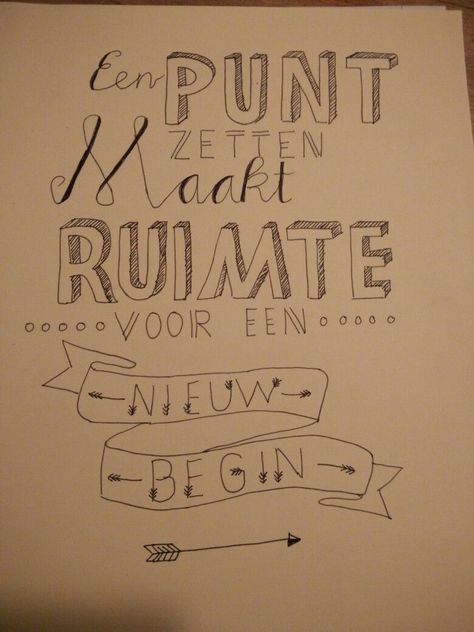 Een PUNT
ZETTEN
Maakt
RUIMTE
VOOR EEN
NIEUW
BEGIN